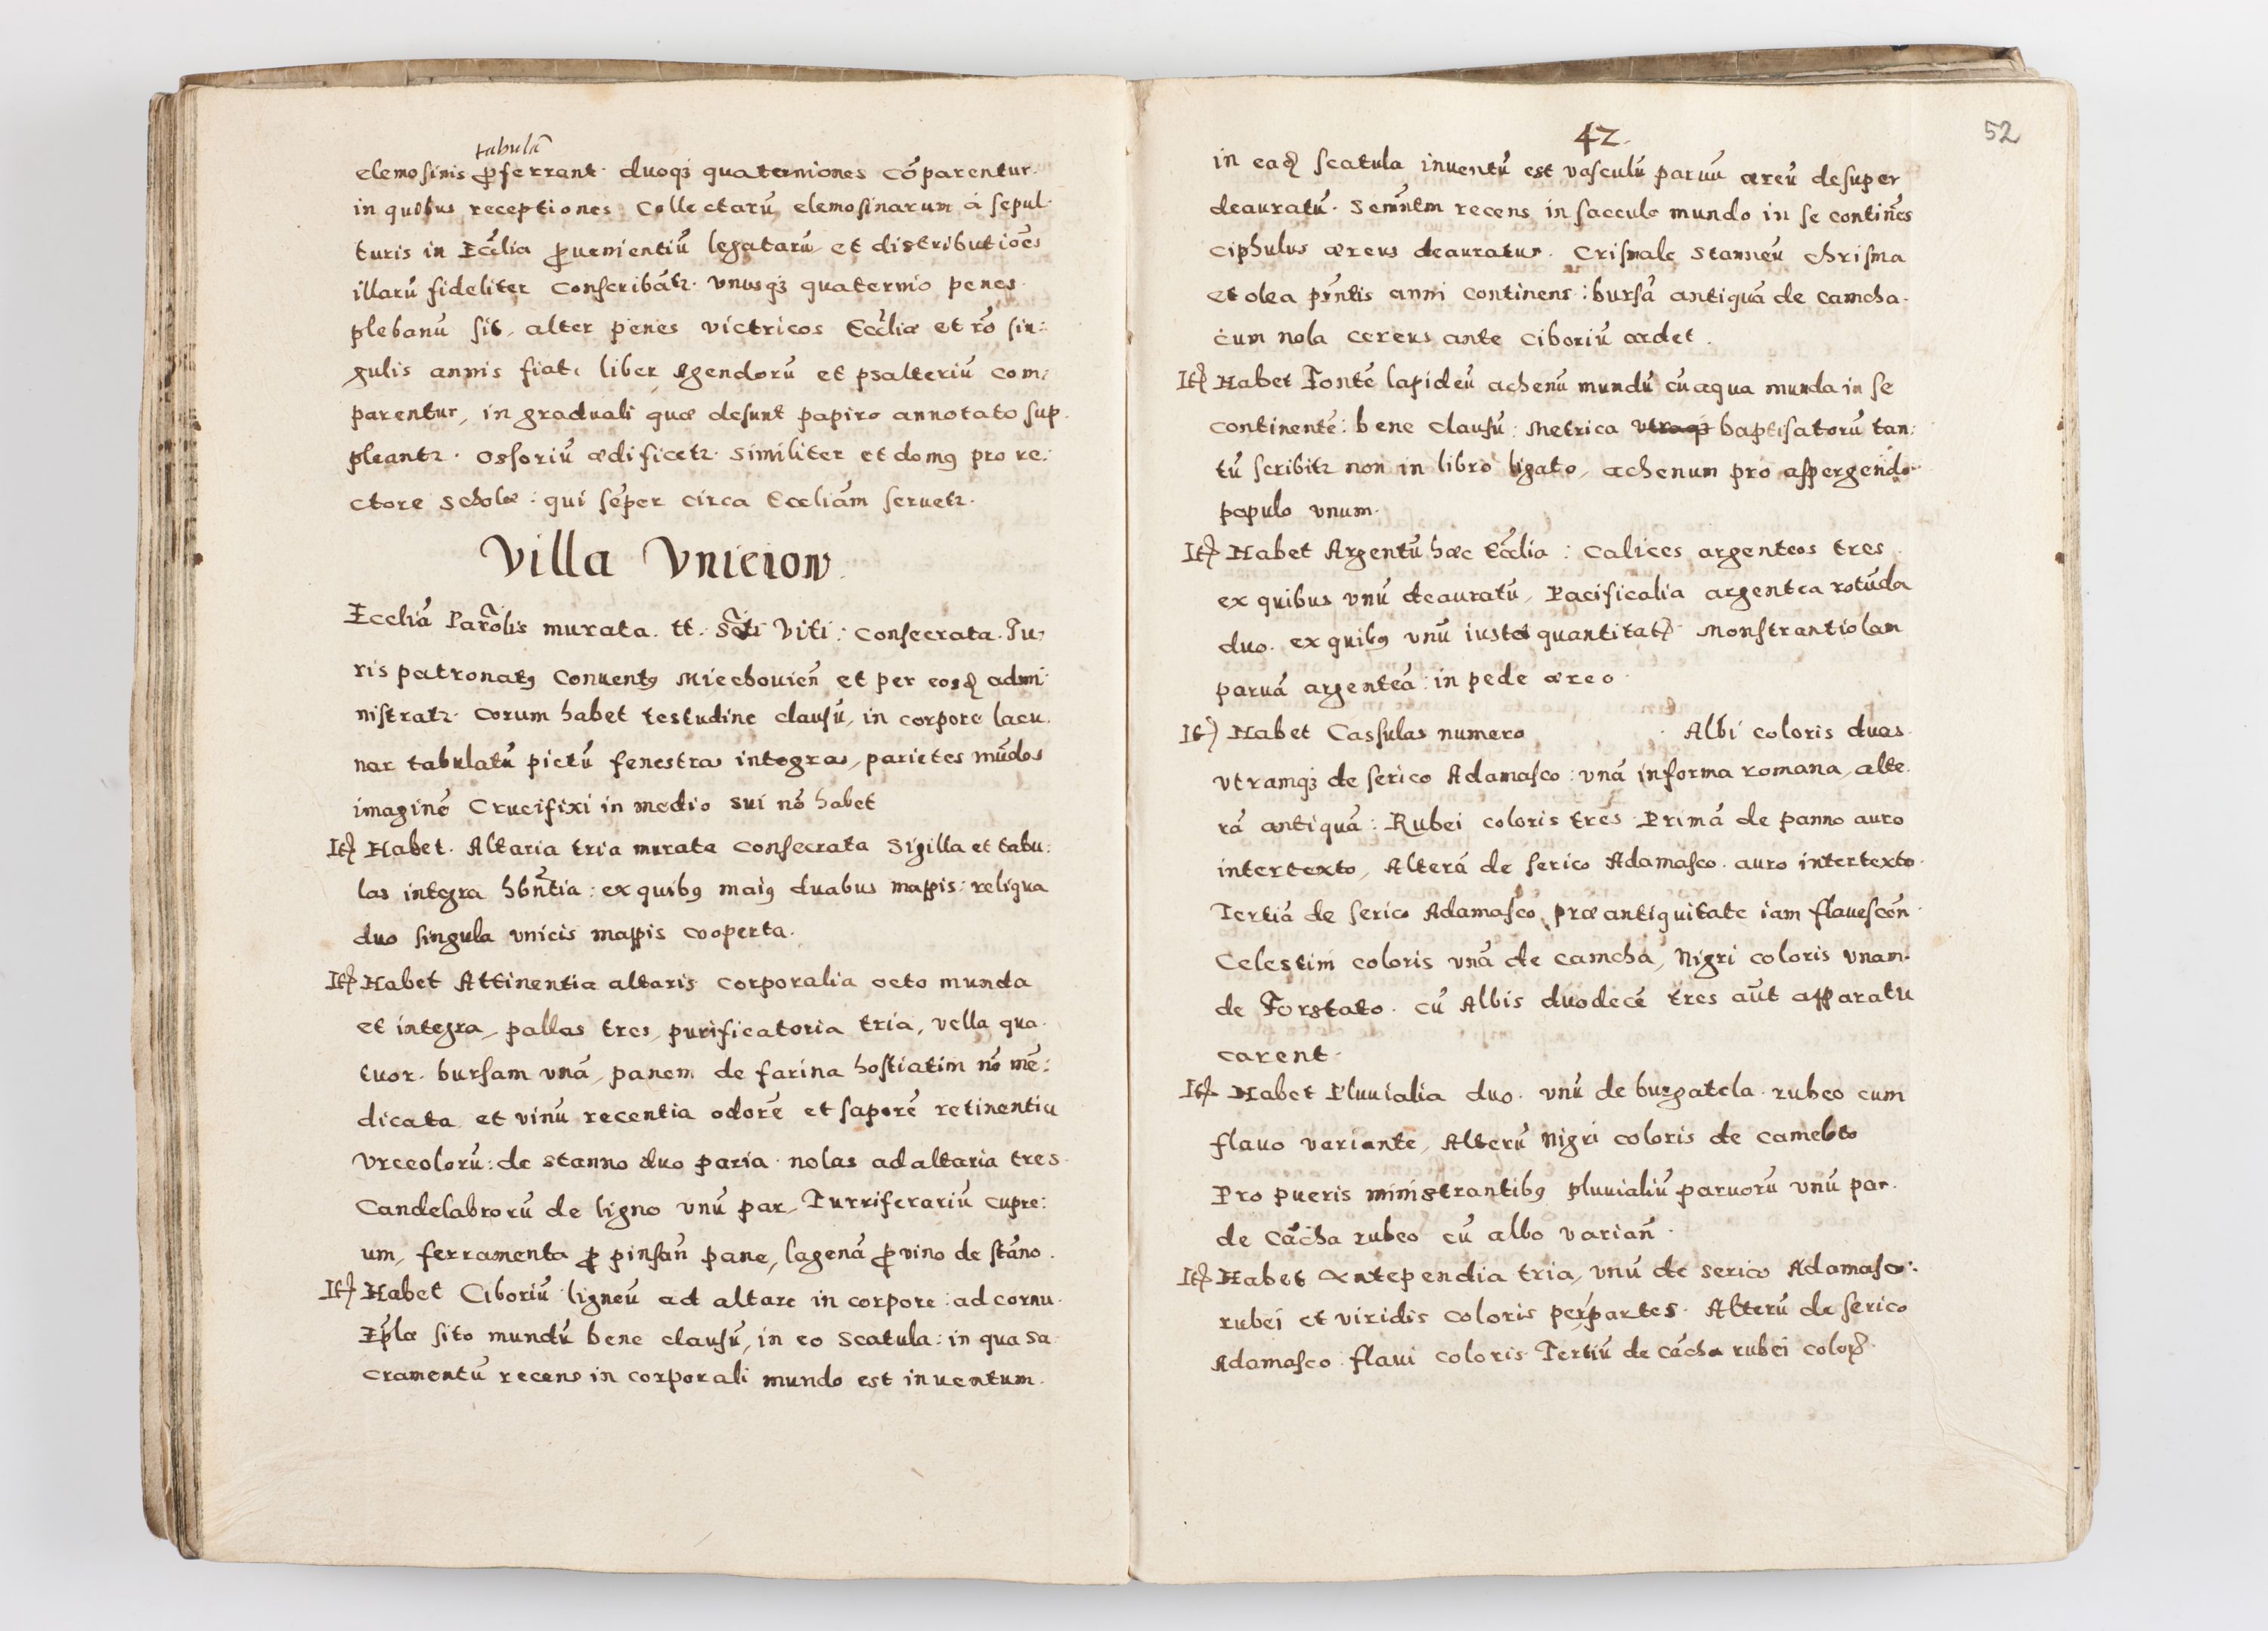 tabulã
elemosinis ꝓferrant. duoqʒ quaterniones cõparentur.
in quibus receptiones Collectarũ elemosinarum à sepul-
turis in Eccĺia ꝓuenientiũ legatarũ et distributiões
illarũ fideliter Conscribãtr. Vnusqʒ quaternio penes
plebanũ sit, alter penes victricos Eccĺiæ et rõ sin:
gulis annis fiat. liber Agendorũ et psalteriũ com:
parentur, in graduali quæ desunt papiro annotato sup-
pleantr. Ossoriũ ædificetr. similiter et domꝰ pro re:
ctore scholæ: qui sẽper circa Eccliãm seruetr.
Villa Vnieiow.
Eccliã Parõlis murata. tt. Scti Viti: Consecrata. Iu:
ris patronatꝰ Conuentꝰ Miechouieñ et per eosd̃ admi
nistratr. Corum habet testudine clausũ, in corpore lacu-
nar tabulatũ pictũ fenestras integras, parietes mũdos
imaginẽ Crucifixi in medio sui nõ habet
It̃ Habet. Altaria tria murata Consecrata Sigilla et tabu:
las integra hbñtia: ex quibꝰ maiꝰ duabus mappis: reliqua
duo singula vnicis mappis cooperta.
It̃ Habet Attinentia altaris Corporalia octo munda
et integra, pallas tres, purificatoria tria, vella qua-
tuor. bursam vnã, panem de farina hostiatim nõ mẽ:
dicata et vinũ recentia odorẽ et saporẽ retinentia
Vrceolorũ: de stanno duo paria. nolas ad altaria tres.
Candelabrorũ de ligno vnũ par, Turriferariũ cupre:
um, ferramenta ꝓ pinsañ pane, lagenã ꝓ vino de stãno.
It̃ Habet Ciboriũ ligneũ ad altare in corpore: ad cornu
Epĺæ sito mundũ bene clausũ, in eo scatula: in qua sa
cramentũ recens in corporali mundo est inuentum.
42.
52
in ead̃ scatula inuentũ est vasculũ paruũ æreũ desuper
deauratũ. Semñtm recens in sacculo mundo in se continẽs
ciphulus æreus deauratus. Crismale stanneũ chrisma
et olea pr̃ntis anni continens: bursã antiquã de camcha.
cum nola cereus ante ciboriũ ardet.
It̃ Habet Fontẽ lapideũ achenũ mundũ cũ aqua munda in se
continentẽ: bene clausũ: Metrica vtraqʒ baptisatorũ tan:
tũ scribitr non in libro ligato, achenum pro aspergendo
populo vnum.
It̃ Habet Argentũ hæc Eccĺia: Calices argenteos tres
ex quibus vnũ deauratũ, Pacificalia argentea rotũda
duo. ex quibꝰ vnũ iustæ quantitat̃. Monstrantiolam
paruã argenteã: in pede æreo.
It̃ Habet Cassulas numero . Albi coloris duas
vtramqʒ de serico Adamasco: vnã in forma romana, alte
rã antiquã: Rubei coloris tres. Primã de panno auro
intertexto, Alterã de serico Adamasco. auro intertexto.
Tertiã de serico Adamasco, præ antiquitate iam flauescẽn
Celestini coloris vnã de camcha, Nigri coloris vnam.
de Forstato. cũ Albis duodecẽ tres aũt apparatu
carent.
It̃ Habet Pluuialia duo. vnũ de burgatela. rubeo cum
flauo variante, Alterũ Nigri coloris de cameloto
Pro pueris ministrantibꝰ pluuialiũ paruorũ vnũ par.
de Cãcha rubeo cũ albo variañ.
It̃ Habet Antependia tria, vnũ de serico Adamasco:
rubei et viridis coloris per partes. Alterũ de serico
Adamasco flaui coloris. Tertiũ de cãcha rubei color̃.